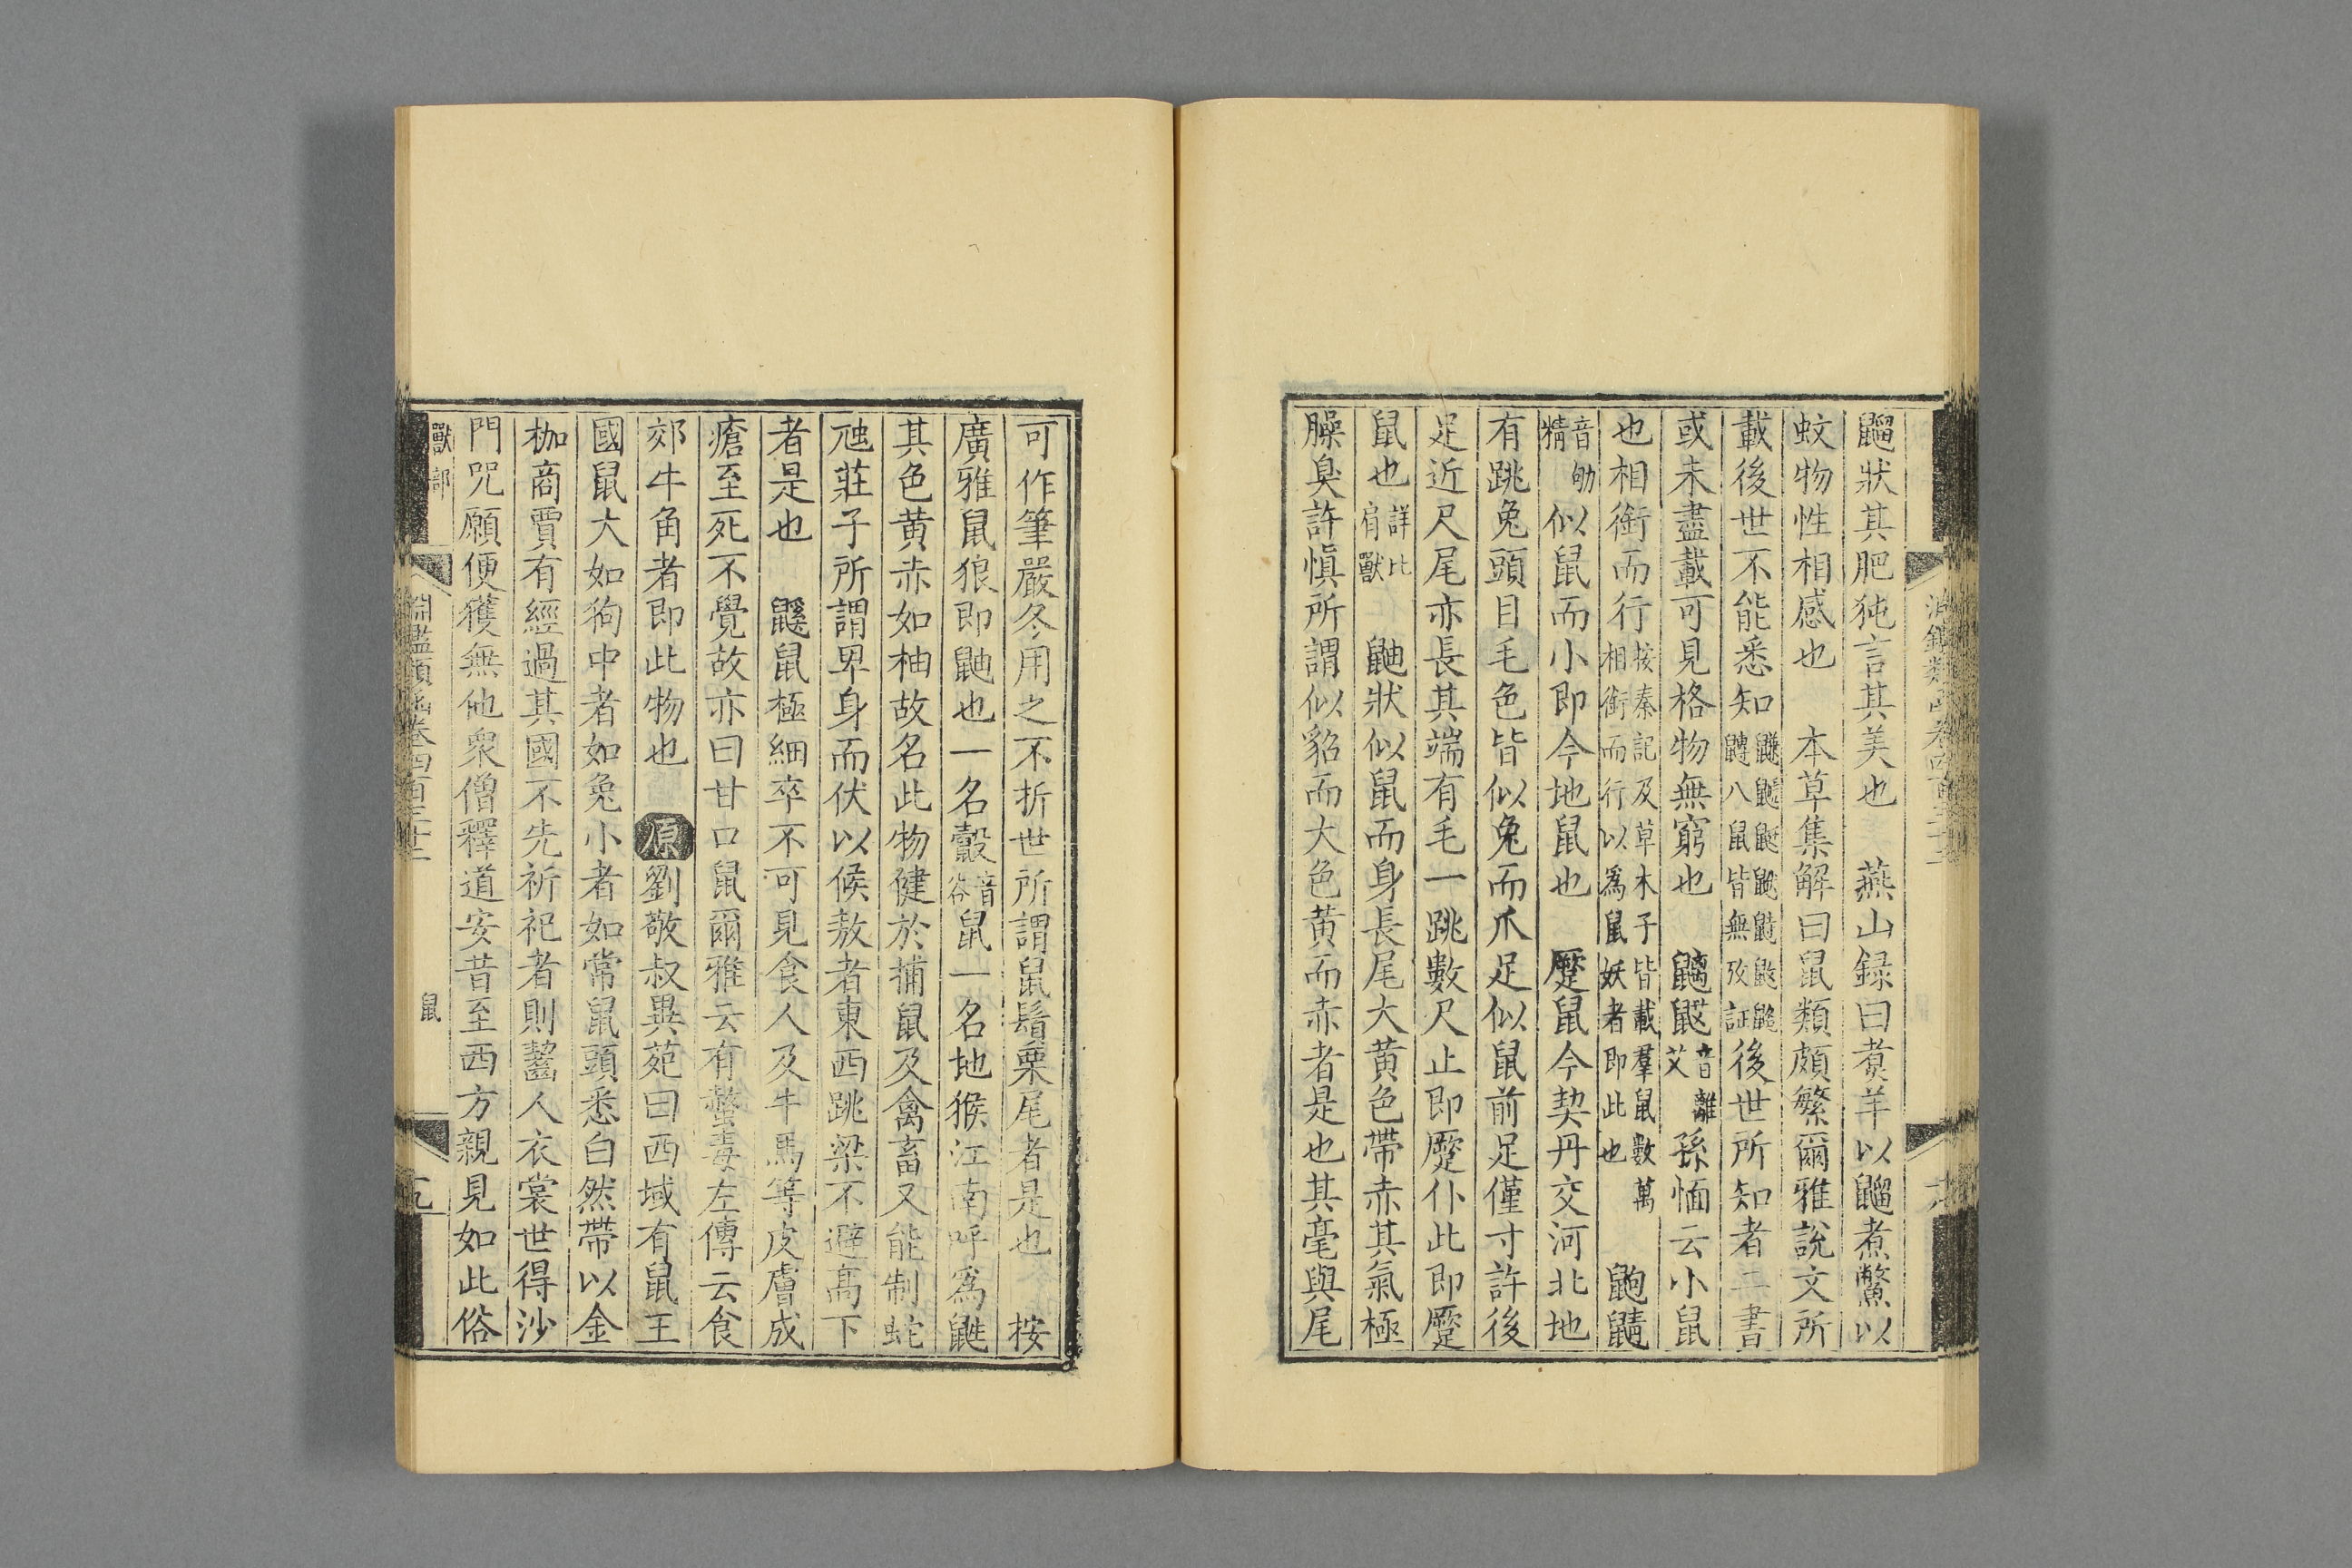 鼺狀其肥㹠言其美也　燕山録曰煑羊以䶉煮鱉以
蚊物性相感也　本草集解曰鼠類頗繁爾雅說文所
載後世不能悉知八鼠皆無攷証後世所知者二書
或未盡載可見格物無窮也　䶉䶅音離艾孫愐云小鼠
也相銜而行按秦記及草木子皆載羣鼠數萬相銜而行以爲鼠妖者即此也　鼩鼱
音劬精似鼠而小即今地鼠也　蹷鼠今契丹交河北地
有跳兔頭目毛色皆似兔而爪足似鼠前足僅寸許後
足近尺尾亦長其端有毛一跳數尺止即蹷仆此即蹷
鼠也詳比肩獸　鼬狀似鼠而身長尾大黄色帶赤其氣極
臊臭許慎所謂似貂而大色黄而赤者是也其毫與尾
可作筆嚴冬用之不折世所謂鼠鬚栗尾者是也　按
廣雅鼠狼即鼬也一名㲉音谷鼠一名地猴江南呼爲鼪
其色黄赤如柚故名此物健於捕鼠及禽畜又能制蛇
虺莊子所謂卑身而伏以候敖者東西跳梁不避髙下
者是也　鼷鼠極細卒不可見食人及牛馬等皮膚成
瘡至死不覺故亦曰甘口鼠爾雅云有螫毒左傳云食
郊牛角者即此物也　原劉敬叔異苑曰西域有鼠王
國鼠大如狗中者如兔小者如常鼠頭悉白然帶以金
枷商賈有經過其國不先祈祀者則齧人衣裳世得沙
門咒願便獲無他衆僧釋道安昔至西方親見如此俗
獸部　淵鑑類函卷四百三十二　鼠